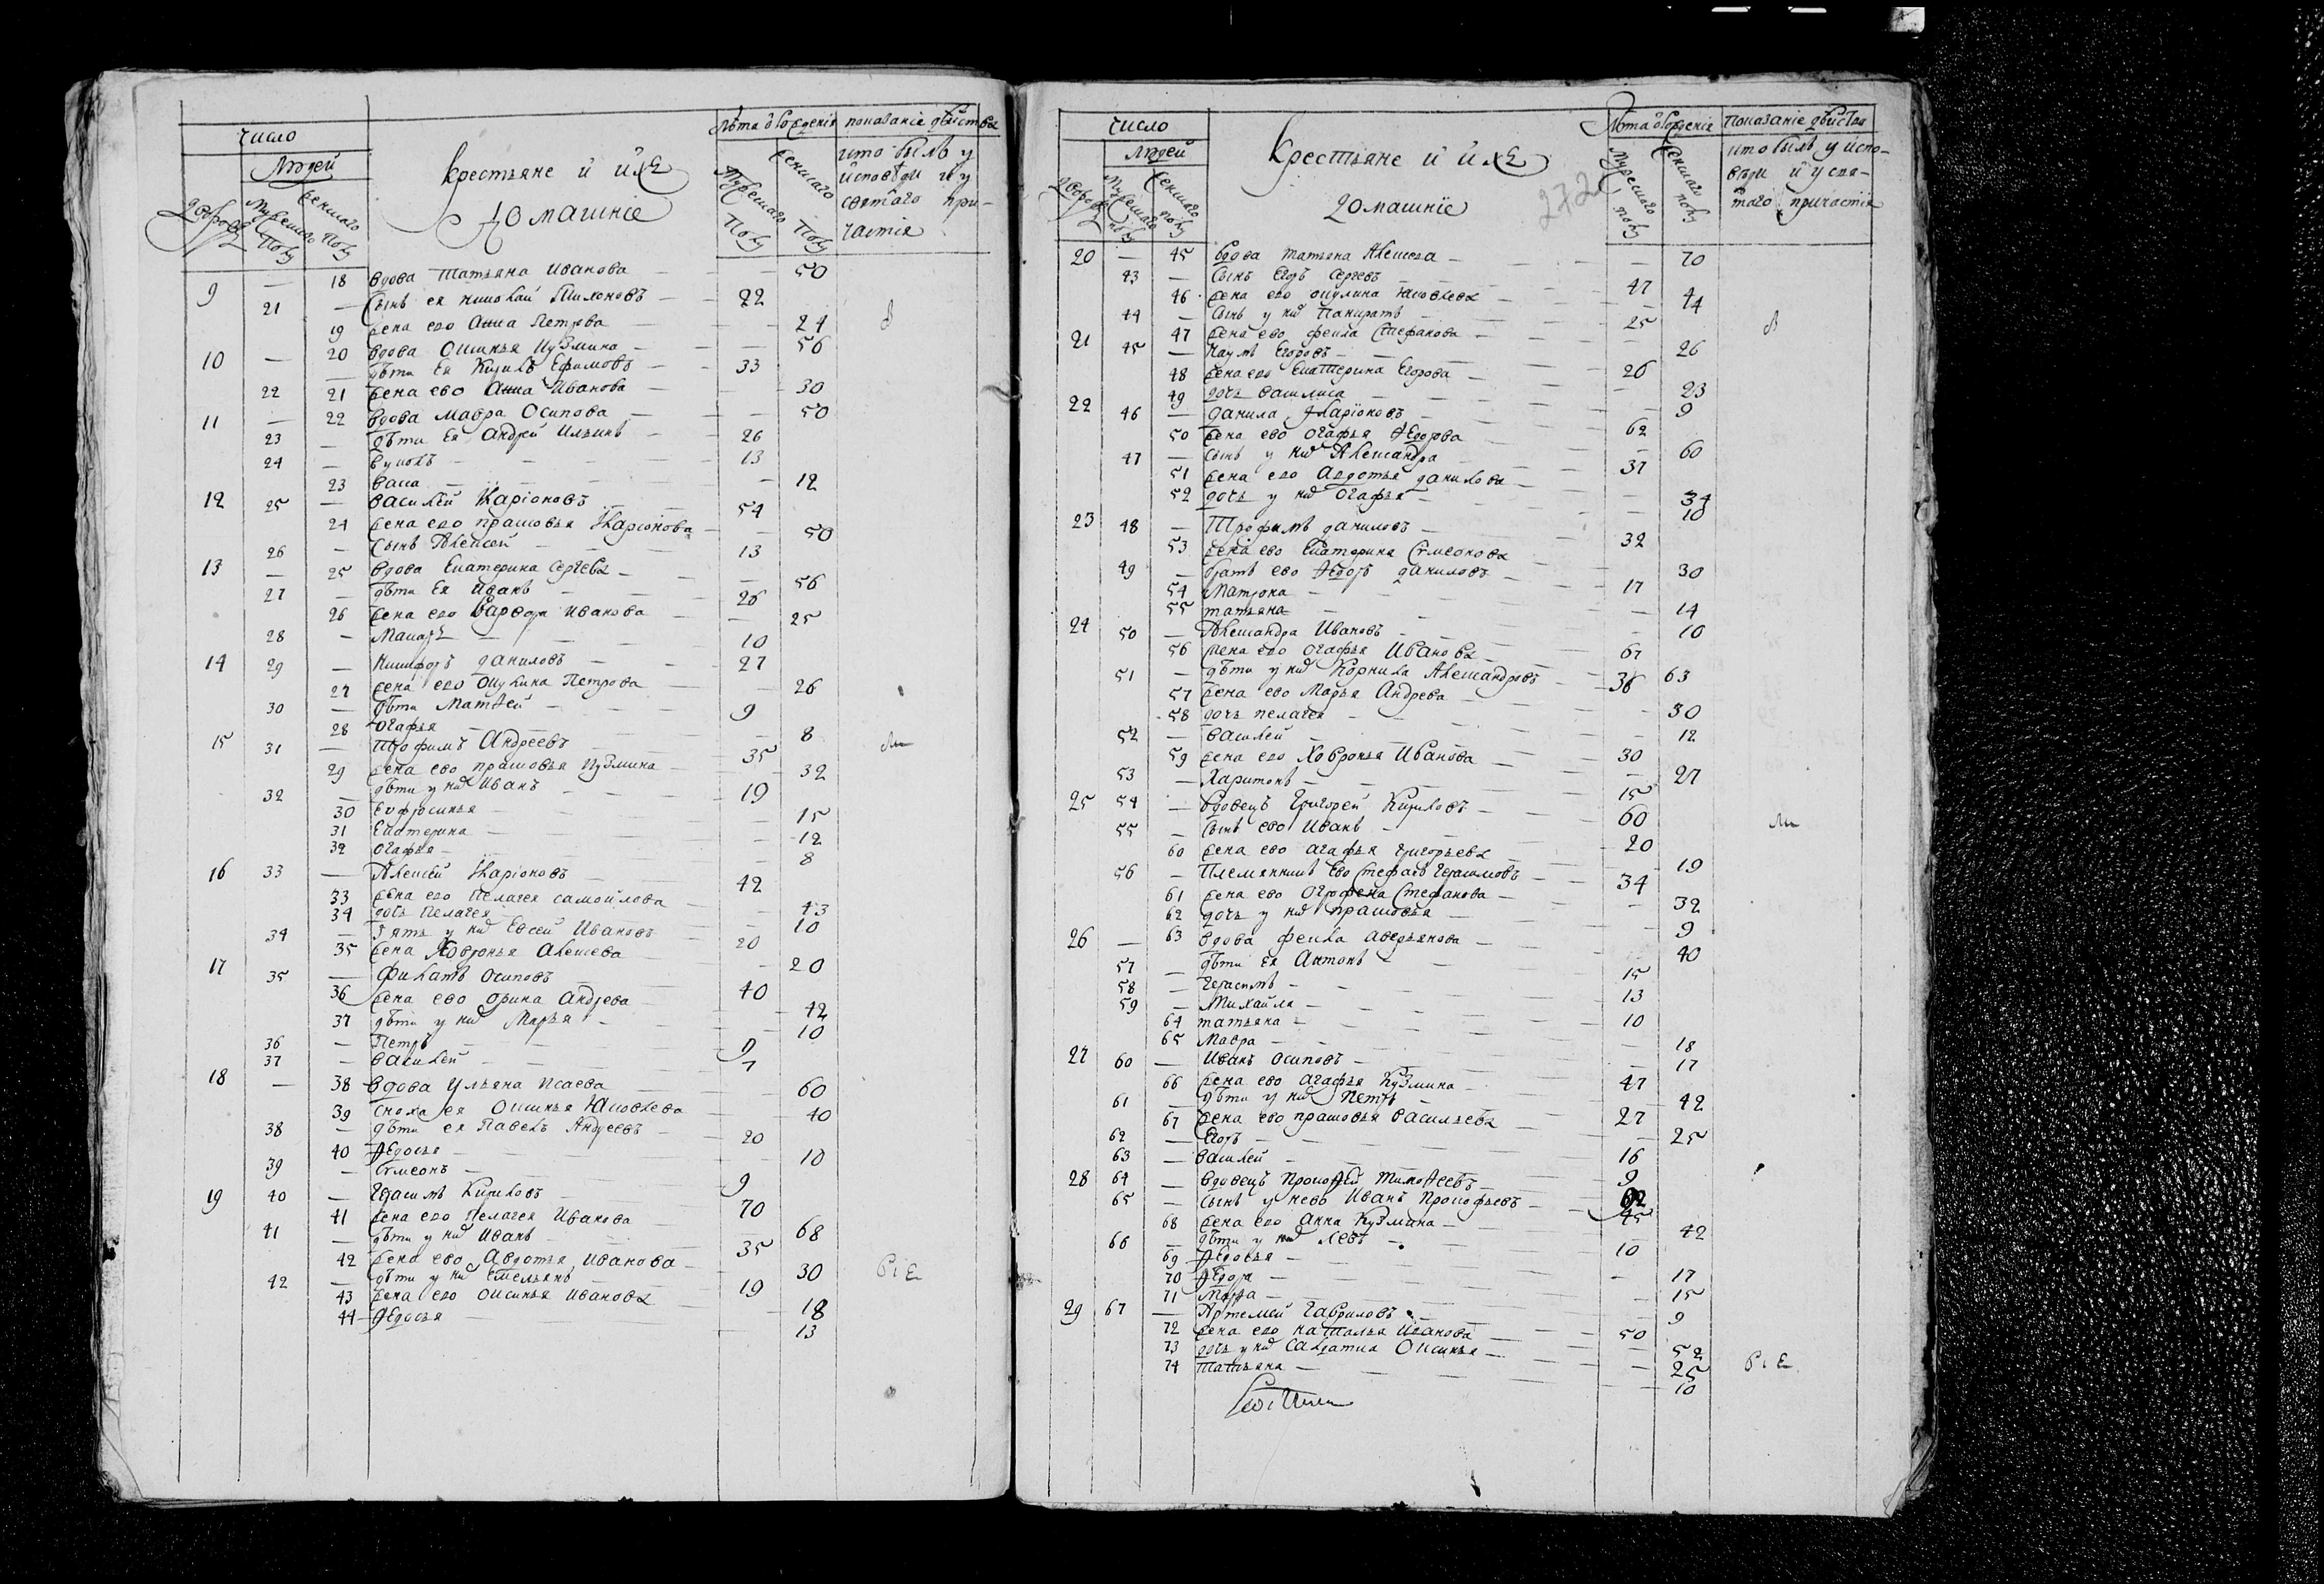 число
Людей
дворовъ
Мужескаго полу
Женскаго полу
крестьяне и ихъ
домашніе
Лѣта отъ рожденія
Мужескаго полу
Женскаго полу
показаніе дѣиства
кто былъ у
исповѣди и у
святаго при-
частія
9 — 18 вдова татьяна Иванова — 50
21 — Сынъ ея николай 22
19 жена ево Анна Петрова — 24
10 — 20 вдова Оксинья Кузмина — 56
дѣти Ея Кирилъ Ефимовъ — 33
22 21 жена ево Анна Иванова — 30
11 — 22 вдова мавра Осипова — 50
23 — дѣти Ея Андрей Ильинъ — 26
24 — вуколъ — 13
23 васа — 12
12 25 — василей Иларіоновъ 54
24 жена ево прасковья Иларіонова — 50
26 — Сынъ Алексей — 13
13 — 25 вдова Екатерина Сергева — 56
27 — дѣти Ея Иванъ — 26
26 жена ево варвара Иванова — 25
28 — Макаръ — 10
14 29 — Никифоръ даниловъ — 27
27 жена ево окулина Петрова — 26
30 — дѣти Матѳей — 9
28 огафья — 8
15 31 — Трофимъ Андреевъ — 35
29 жена ево прасковья Кузмина — 32
32 — дѣти у них Иванъ — 19
30 Ефросинья — 15
31 Екатерина — 12
32 огафья — 8
16 33 — Алексей Иларіоновъ — 42
33 жена ево Пелагея самойлова — 43
34 дочь Пелагея — 10
34 — зять у них Евсей Ивановъ 20
35 жена Ховронья Алексева — 20
17 35 — Филатъ осиповъ — 40
36 жена ево орина Андрева — 42
37 дѣти у них Марья — 10
36 — Петръ — 9
37 — василей — 7
18 — 38 вдова Ульяна Исаева — 60
39 сноха ея Оксинья Яковлева — 40
38 — дѣти ея Павелъ Андреевъ — 20
40 Ѳедосья — 10
39 — Симеонъ — 9
19 40 — Герасимъ Кириловъ — 70
41 жена ево Пелагея Иванова — 68
41 — дѣти у них Иванъ — 35
42 жена ево Авдотья Иванова — 30
42 — дѣти у них Емельянъ — 19
43 жена ево оксинья Иванова — 18
44 Ѳедосья — 13
число
Людей
дворовъ
Мужескаго полу
Женскаго полу
Крестьяне и ихъ
домашніе
272
Лѣта отъ рожденія
Мужескаго полу
Женскаго полу
Показаніе дѣиства
кто былъ у испо-
вѣди и у свя-
таго причастія
20 — 45 вдова татьяна Алексева — 70
43 — Сынъ Егоръ Сергевъ — 47
46 жена ево окулина Яковлева — 44
44 — Сынъ у них Панкратъ — 25
47 жена ево фекла Стефанова — 26
21 45 — Наумъ Егоровъ — 26
48 жена ево Екатерина Егорова — 23
49 дочь василиса — 9
22 46 — данила Иларіоновъ — 62
50 жена ево огафья Ѳедорова — 60
47 — сынъ у них Александра — 37
51 жена ево Авдотья данилова — 34
52 дочь у них огафья — 10
23 48 — Трофимъ даниловъ — 32
53 жена ево Екатерина Симеонова — 30
49 — братъ ево Ѳедоръ даниловъ — 17
54 Матрона — 14
55 татьяна — 10
24 50 — Александра Ивановъ — 67
56 жена ево огафья Иванова — 63
51 — дѣти у них Корнила Александровъ — 36
57 жена ево Марья Андрева — 30
58 дочь пелагея — 12
52 — василей — 30
59 жена ево Ховронья Иванова — 27
53 — Харитонъ — 15
25 54 — вдовецъ Григорей Кириловъ — 60
55 — Сынъ ево Иванъ — 20
60 жена ево агафья григорьева — 19
56 — Племянникъ Ево Стефанъ Герасимовъ — 34
61 жена ево Огрофена Стефанова — 32
62 дочь у них прасковья — 9
26 — 63 вдова фекла аверьянова — 40
57 — дѣти ея Антонъ — 15
58 — Герасимъ — 13
59 — Михайла — 10
64 татьяна — 18
65 Мавра — 17
27 60 — Иванъ осиповъ — 47
66 жена ево агафья Кузмина — 42
61 — дѣти у них Петръ — 27
67 жена ево прасковья васильева — 25
62 — Егоръ — 16
63 — василей — 9
28 64 — вдовецъ Прокоѳей тимоѳеевъ — 62
65 — сынъ у нево Иванъ Прокофьевъ — 45
68 жена ево Анна Кузмина — 42
66 — дѣти у них Левъ — 10
69 Ѳедосья — 17
70 Ѳедора — 15
71 Марфа — 9
29 67 — Артемей Гавриловъ — 50
72 жена ево наталья Иванова — 52
73 дочь у них Салдатка Оксинья — 25
74 татьяна — 10